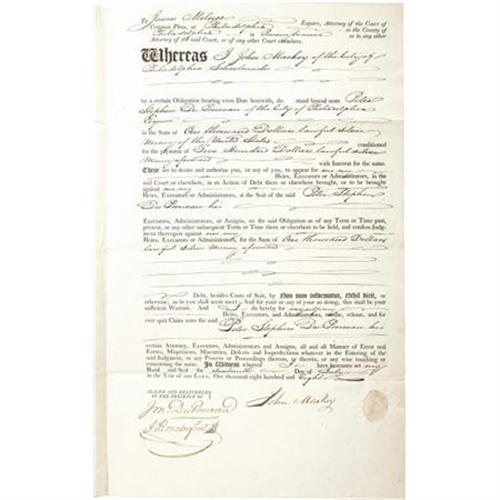 To James Milnor Esquire, Attorney of the Court of
Common Pleas, at Philadelphia in the County
of Philadelphia in Pennsylvania or to any other
Attorney of the said Court, or of any other Court elsewhere.
Whereas I John Mackey of the City of
Philadelphia Schoolmaster
by a certain Obligation bearing even Date herewith, do stand bound unto Peter
Stephen Du Ponceau of the City of Philadelphia
Esquire
in the Sum of One thousand Dollars lawful silver
Money of the United States conditioned
for the payment of Five Hundred Dollars lawful silver
Money aforesaid with Interest for the same.
These are to desire and authorize you, or any of you, to appear for me my
Heirs, Executors or Administrators, in the
said Court or elsewhere, in an Action of Debt there or elsewhere brought, or to be brought
against me my
Heirs, Executors, or Administrators, at the Suit of the said Peter Stephen
Du Ponceau his
Executors, Administrators, or Assigns, on the said Obligation as of any Term or Time past,
present, or any other subsequent Term or Time there or elsewhere to be held, and confess Judgment
thereupon against me my
Heirs, Executors or Administrators, for the Sum of One thousand Dollars
lawful Silver Money aforesaid
Debt, besides Costs of Suit, by Non sum informatus, Nihil dicit, or
otherwise, as to you shall seem meet: And for your or any of your so doing, this shall be your
sufficient Warrant. And I do hereby for myself my
Heirs, Executors, and Administrators, remise, release, and for
ever quit Claim unto the said Peter Stephen Du Ponceau his
Executors, Administrators and Assigns, all and all Manner of Error and
Errors, Misprisions, Miscarries, Defects and Imperfections whatsoever in the Entering of the
said Judgment, or any Process or Proceedings thereon, or thereto, or any wise touching or
concerning the same. In Witness whereof I have hereunto set my
Hand and Seal the Day of July in
the Year of our Lord, One thousand eight hundred and Eight
SEALED AND DELIVERED
IN THE PRESENCE OF
Jn. Du Ponceau
John Mackey